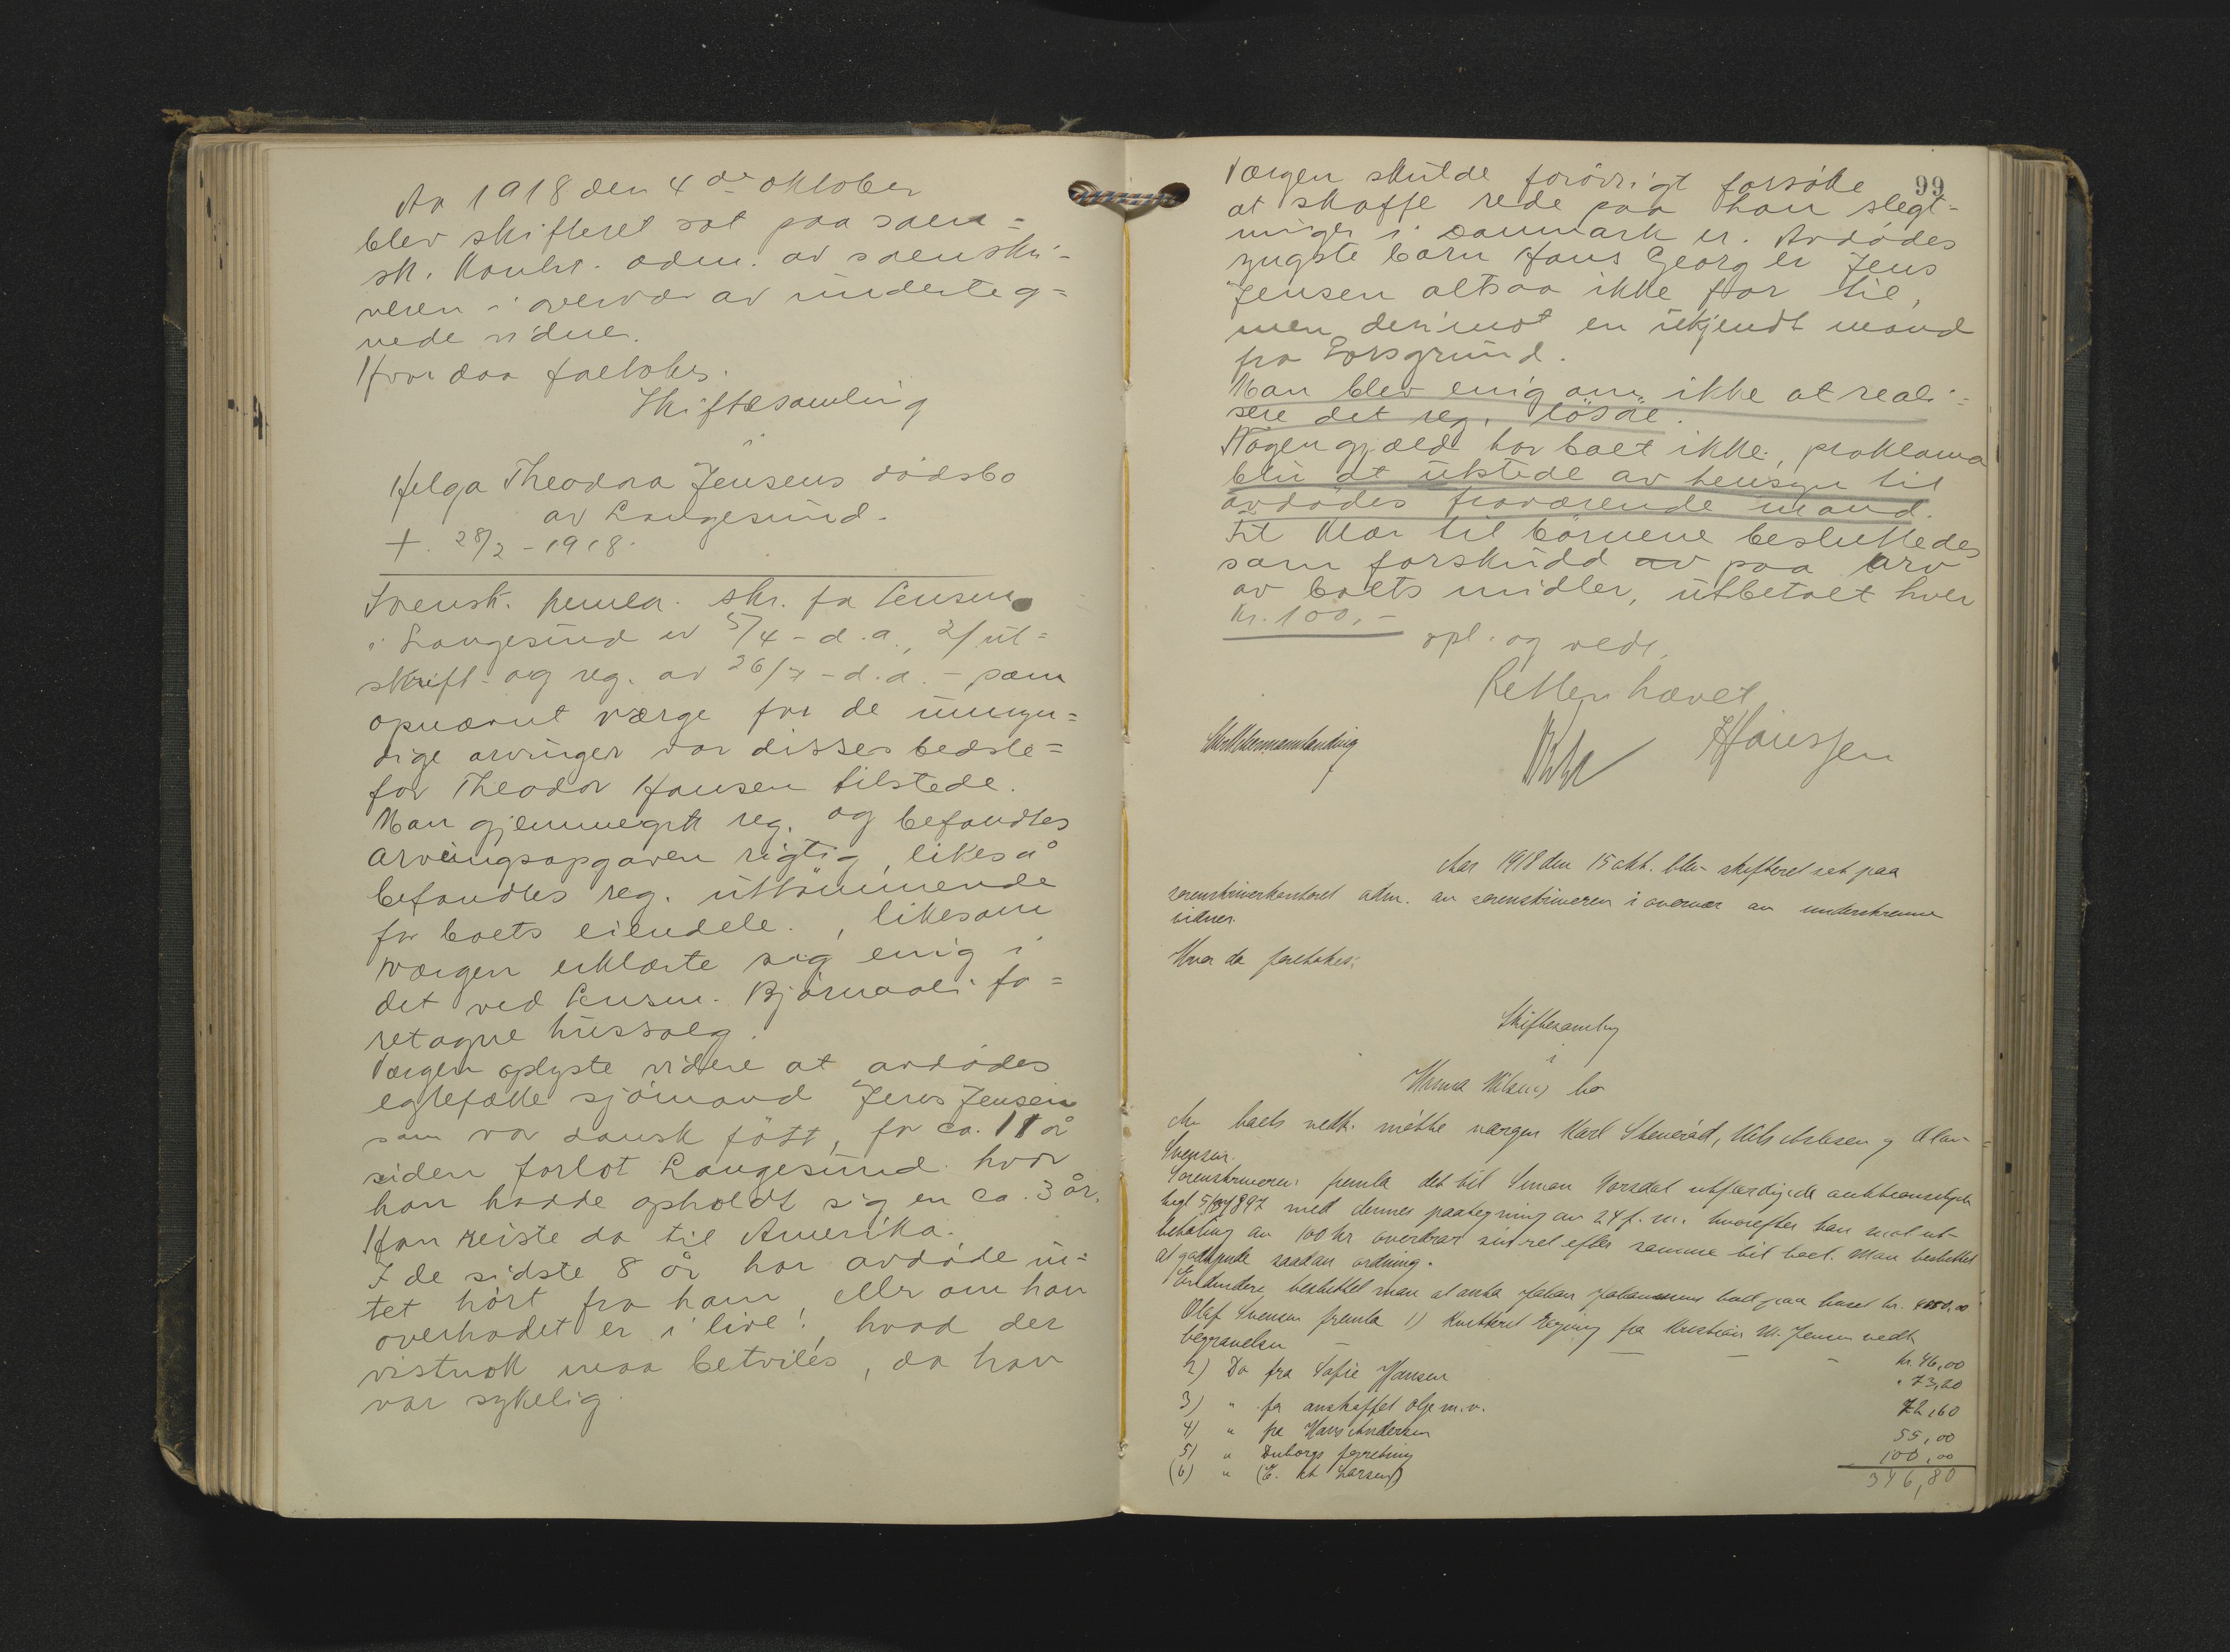 Aar 1918 den 4de oktober
blev skifteret sat paa soren=
sk. Kontor. adm. av sorenskri-
veren i overvær av underteg=
nede vidner.
Hvor daa foretokes.
Skiftesamling
i
Helga Theodora Jensens dödsbo
av Langesund.
+. 28/2 - 1918.
Sorensk. fremla. skr. fra Lensm.
i Langesund av 5/4 - d.a., 2/ ut=
skrift og reg. av 26/7 - d.a. - som
opnævnt værge for de umyn=
dige arvinger var disses bedste=
far Theodor Hansen tilstede.
Man gjennemgik reg. og befandtes
arvingsopgaven rigtig, likeså
befandtes reg. uttömmende
for boets eiendele., likesom
værgen erklærte sig enig i
det ved Lensm. Björnaali fo=
retagne hussalg.
Værgen oplyste videre at avdödes
egtefælle sjömand Jens Jensen
som var dansk född, for ca. 11 år
siden forlot Langesund hvor
han hadde opholdt sig en ca. 3 år.
Han reiste da til Amerika.
I de sidste 8 år har avdöde in=
tet hört fra ham eller om han
overhodet er i live!, hvad der
vistnok maa betviles, da han
var sykelig.
99
Værgen skulde forövrigt forsöke
at skaffe rede paa han slegt-
ninger i Danmark er. Avdödes
yngste barn Hans Georg er Jens
Jensen altsaa ikke far til,
men derimot en ukjendt mand
fra Porsgrund.
Man blev enig om ikke at reali=
sere det reg. lösöre.
Nogen gjæld har boet ikke, proklama
blir at utstede av hensyn til
avdödes fraværende mand.
Til klær til börnene besluttedes
som forskudd av paa arv
av boets midler, utbetalt hver
Kr. 100,-
opl. og vedt.
Retten hævet
Hanssen
Aar 1918 den 15 okt. blev skifteret sat paa
sorenskriverkontoret adm. av sorenskriveren i overvær av underskrevne
vidner.
Hvor da foretokes:
Skiftesamling
i
bo
boets vedk. mötte værgen Karl Stenerød, Nils Aslesen og Olav
Svensen.
Sorenskriveren fremla det til Simon utfærdigede auktionsskjøte
tingl 5/ 1897 med dennes paategning av 24 f. m. hvorefter han mot ut-
betaling av 100 kr overdrar sin ret efter samme til boet. Man besluttet
at godkjende saadan ordning.
Endvidere besluttet man at anta Johan Johannesens bud paa huset kr. 4050,00
Olaf Svensen fremla 1) Kvittert Regning fra Kristian M. Jensen vedk
begravelsen kr. 46,00
2) Do fra Sofie Hansen " 73,20
3) " for anskaffet olje m.v. 72,60
4) " fra Hans Andersen 55,00
5) " Duborgs forretning 100,00
(6) " (E. Larsen)
346,80